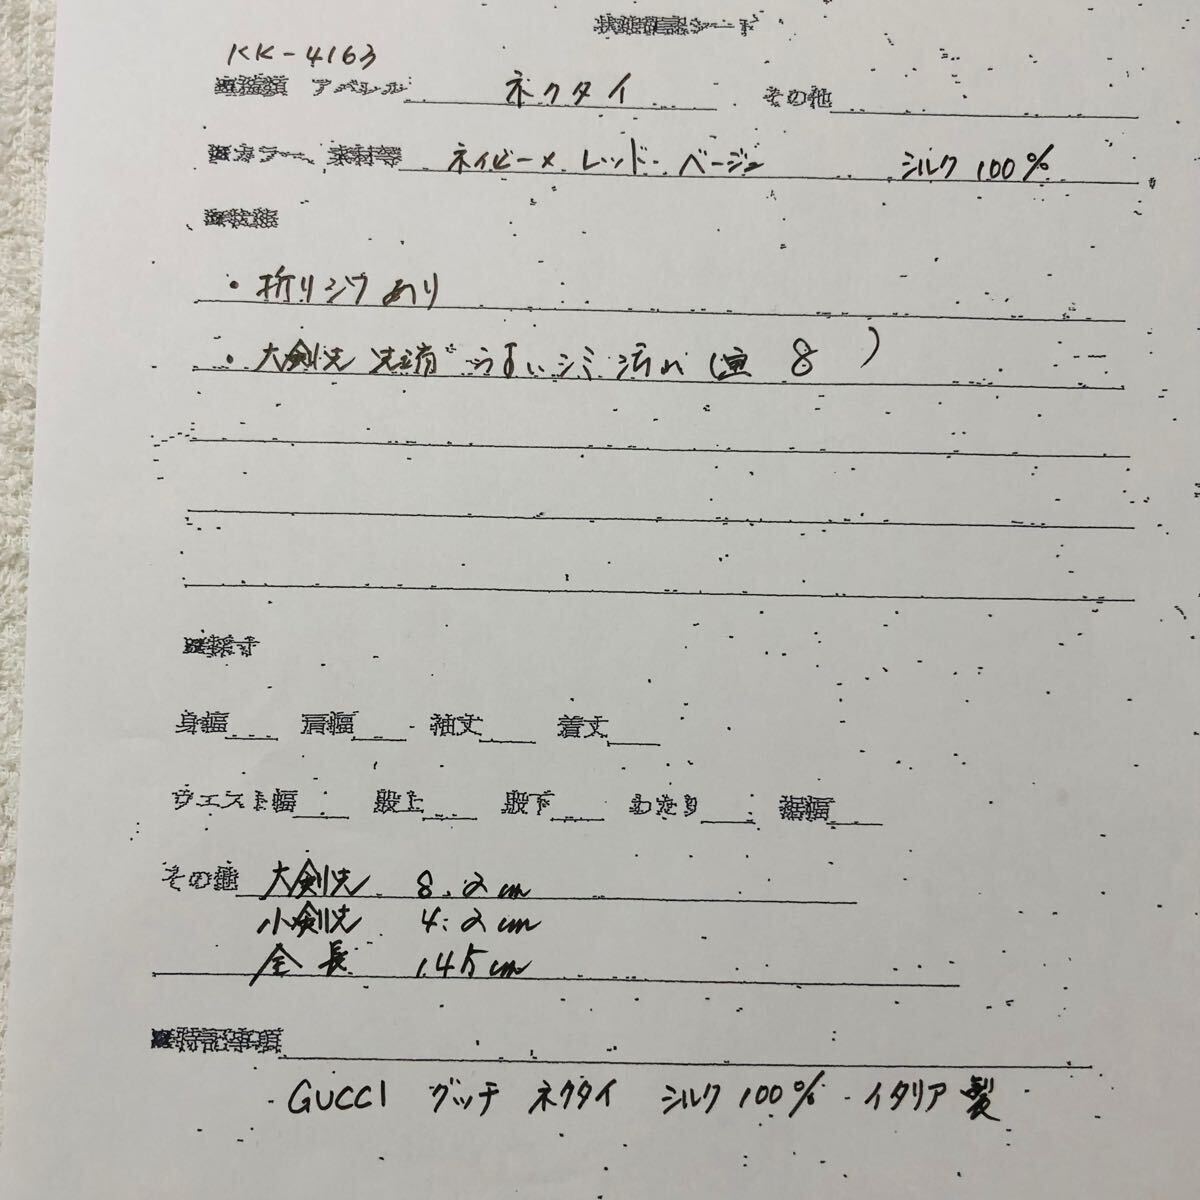 状態確認シート
KK-4163
■種類 アパレル ネクタイ その他
■カラー、素材等 ネイビー× レッド・ベージュ シルク 100%
■状態
・折りジワあり
・大剣先 先端 うすいシミ 汚れ ( 8 )
■採寸
身幅 肩幅 袖丈 着丈
ウエスト幅 股上 股下 わたり 裾幅
その他 大剣先 8.2cm
小剣先 4.2cm
全長 145cm
■特記事項
・GUCCI グッチ ネクタイ シルク 100% ・イタリア製